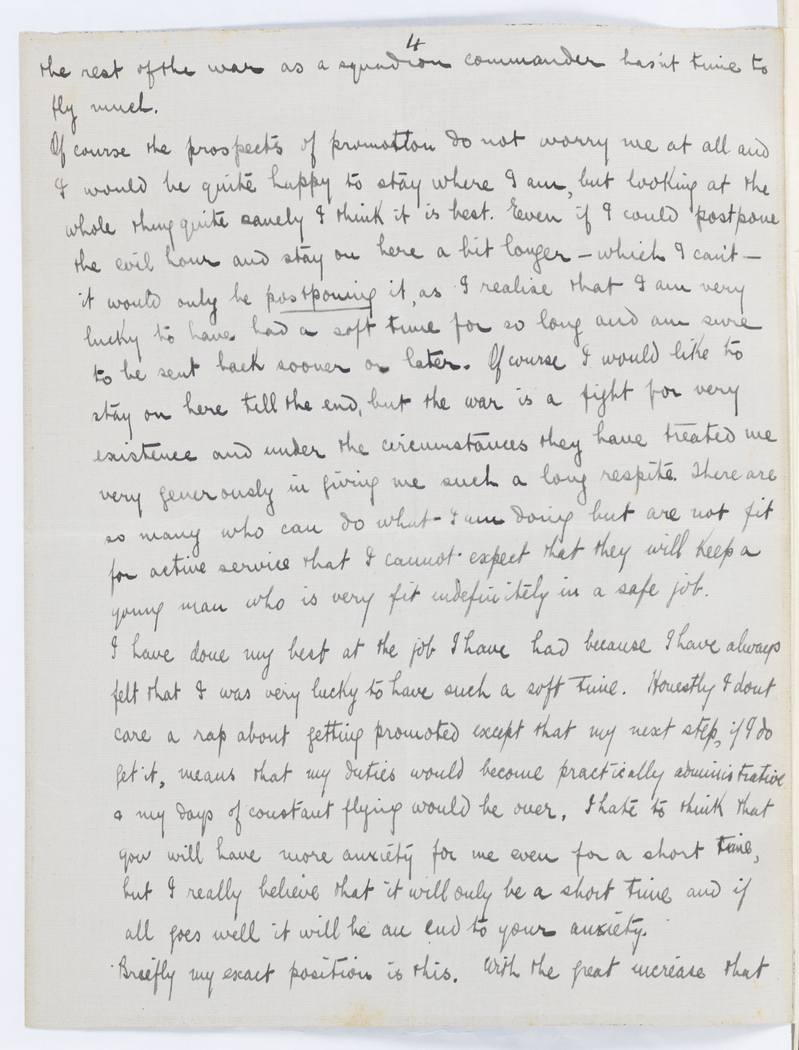 4
the rest of the war as a squadron commander hasn't time to
fly much.
Of course the prospects of promotion do not worry me at all and
I would be quite happy to stay where I am, but looking at the
whole thing quite sanely I think it is best. Even if I could postpone
the evil hour and stay on here a bit longer – which I can't –
it would only be postponing it, as I realise that I am very
lucky to have had a soft time for so long and am sure
to be sent back sooner or later. Of course I would like to
stay on here till the end, but the war is a fight for very
existence and under the circumstances they have treated me
very generously in giving me such a long respite. There are
so many who can do what I am doing but are not fit
for active service that I cannot expect that they will keep a
young man who is very fit indefinitely in a safe job.
I have done my best at the job I have had because I have always
felt that I was very lucky to have such a soft time. Honestly I dont
care a rap about getting promoted except that my next step, if I do
get it, means that my duties would become practically administrative
& my days of constant flying would be over. I hate to think that
you will have more anxiety for me even for a short time,
but I really believe that it will only be a short time and if
all goes well it will be an end to your anxiety.
Briefly my exact position is this. With the great increase that